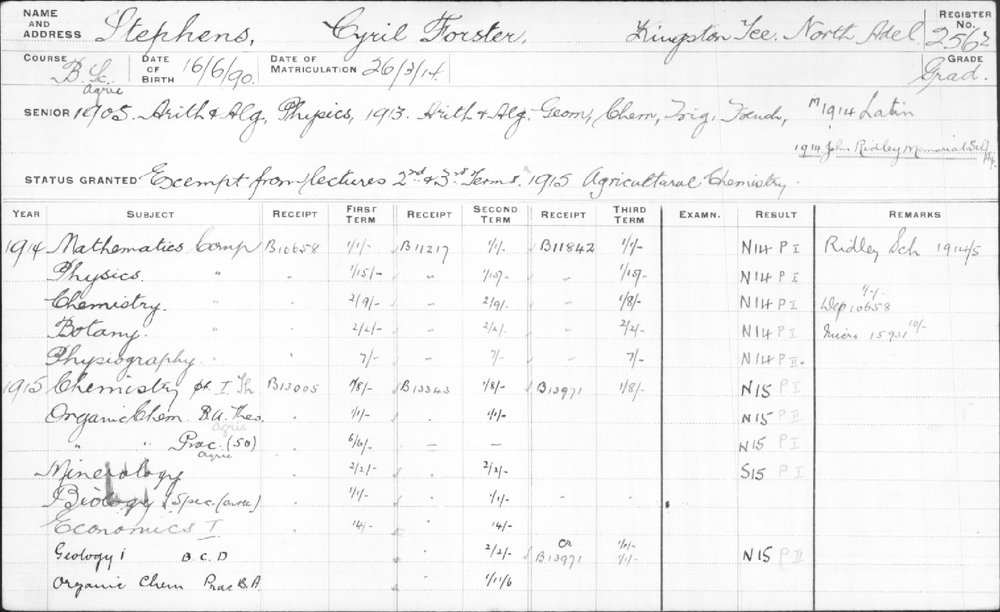 NAME AND ADDRESS Stephens, Cyril Forster, Kingston Tce. North Adel. REGISTER No. 2562
COURSE B. Sc. Agric DATE OF BIRTH 16/6/90. DATE OF MATRICULATION 26/3/14. GRADE Grad.
SENIOR 1905. Arith & Alg, Physics, 1913. Arith & Alg. Geom, Chem, Trig, French, M 1914 Latin
1914 John Ridley Memorial Sch
STATUS GRANTED Exempt from lectures 2nd & 3rd Terms. 1915 Agricultural Chemistry.
YEAR SUBJECT RECEIPT FIRST TERM RECEIPT SECOND TERM RECEIPT THIRD TERM EXAMN. RESULT REMARKS
1914 Mathematics Comp B10658 1/1/- B11217 1/1/- B11842 1/1/- N14 P I Ridley Sch 1914/5
Physics. " 1/15/- " 1/15/- - 1/15/- N14 P I
Chemistry. " 2/9/- - 2/9/- - 1/8/- N14 P I Dep 10658 1/-/-
Botany. " 2/2/- - 2/2/- - 2/2/- N14 P I Micro 15931 10/-
Physiography. 7/- - 7/- - 7/- N14 P II.
1915 Chemistry pt I Th B13005 1/8/- B13343 1/8/- B13971 1/8/- N15 P I
Organic Chem B.A. Theo. Agric 1/1/- 1/1/- N15 P II
" " Prac. (50) Agric 6/6/- - - N15 P I
Mineralogy 2/2/- 2/2/- S15 P I
Biology Spec. 1/1/- 1/1/-
Economics I 14/- 14/-
Geology I B.C.D 2/2/- Cr B13971 1/1/- 1/1/- N15 P II
Organic Chem Prac B.A. 1/11/6